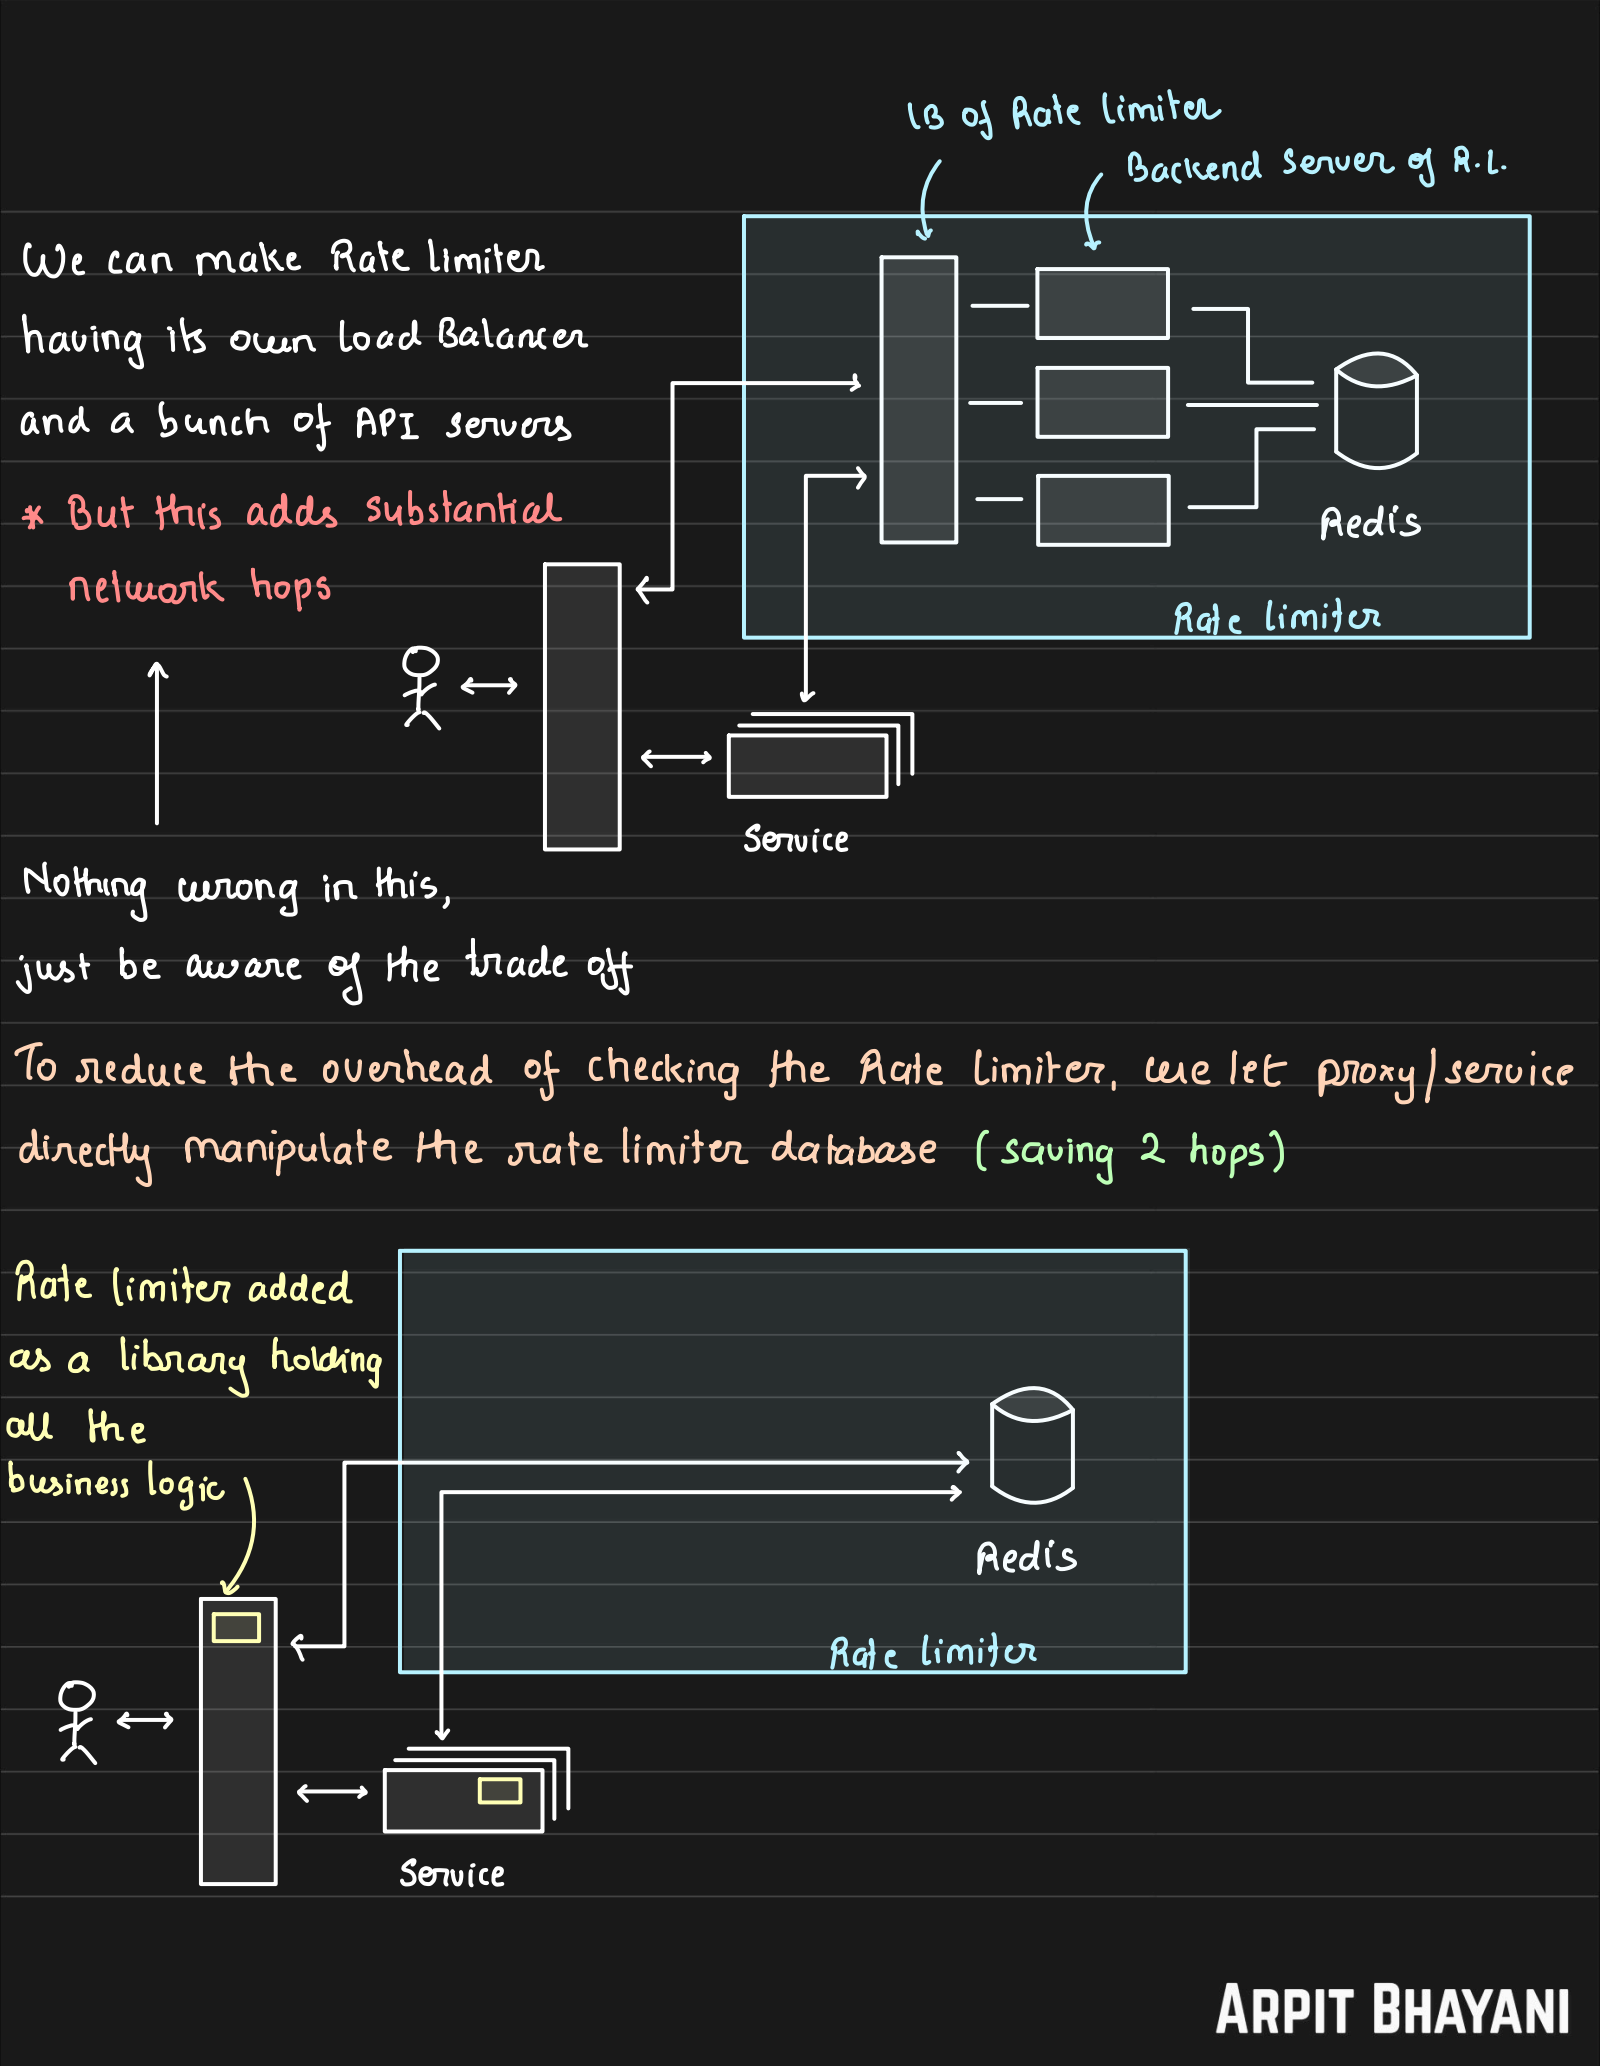 LB of Rate limiter
Backend Server of R.L.
We can make Rate limiter
having its own Load Balancer
and a bunch of API servers
* But this adds substantial
network hops
Redis
Rate limiter
Service
Nothing wrong in this,
just be aware of the trade off
To reduce the overhead of checking the Rate Limiter, we let proxy/service
directly manipulate the rate limiter database (saving 2 hops)
Rate limiter added
as a library holding
all the
business logic
Redis
Rate limiter
Service
ARPIT BHAYANI